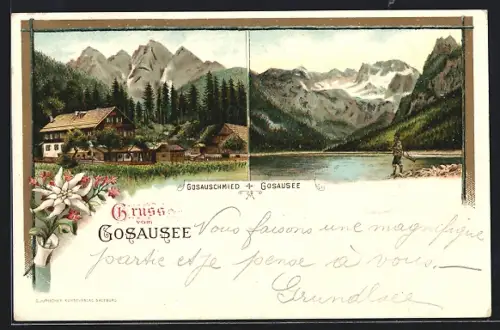 GOSAUSCHMIED GOSAUSEE
Gruss
vom
GOSAUSEE
Vous faisons une magnifique
partie et je pense à vous.